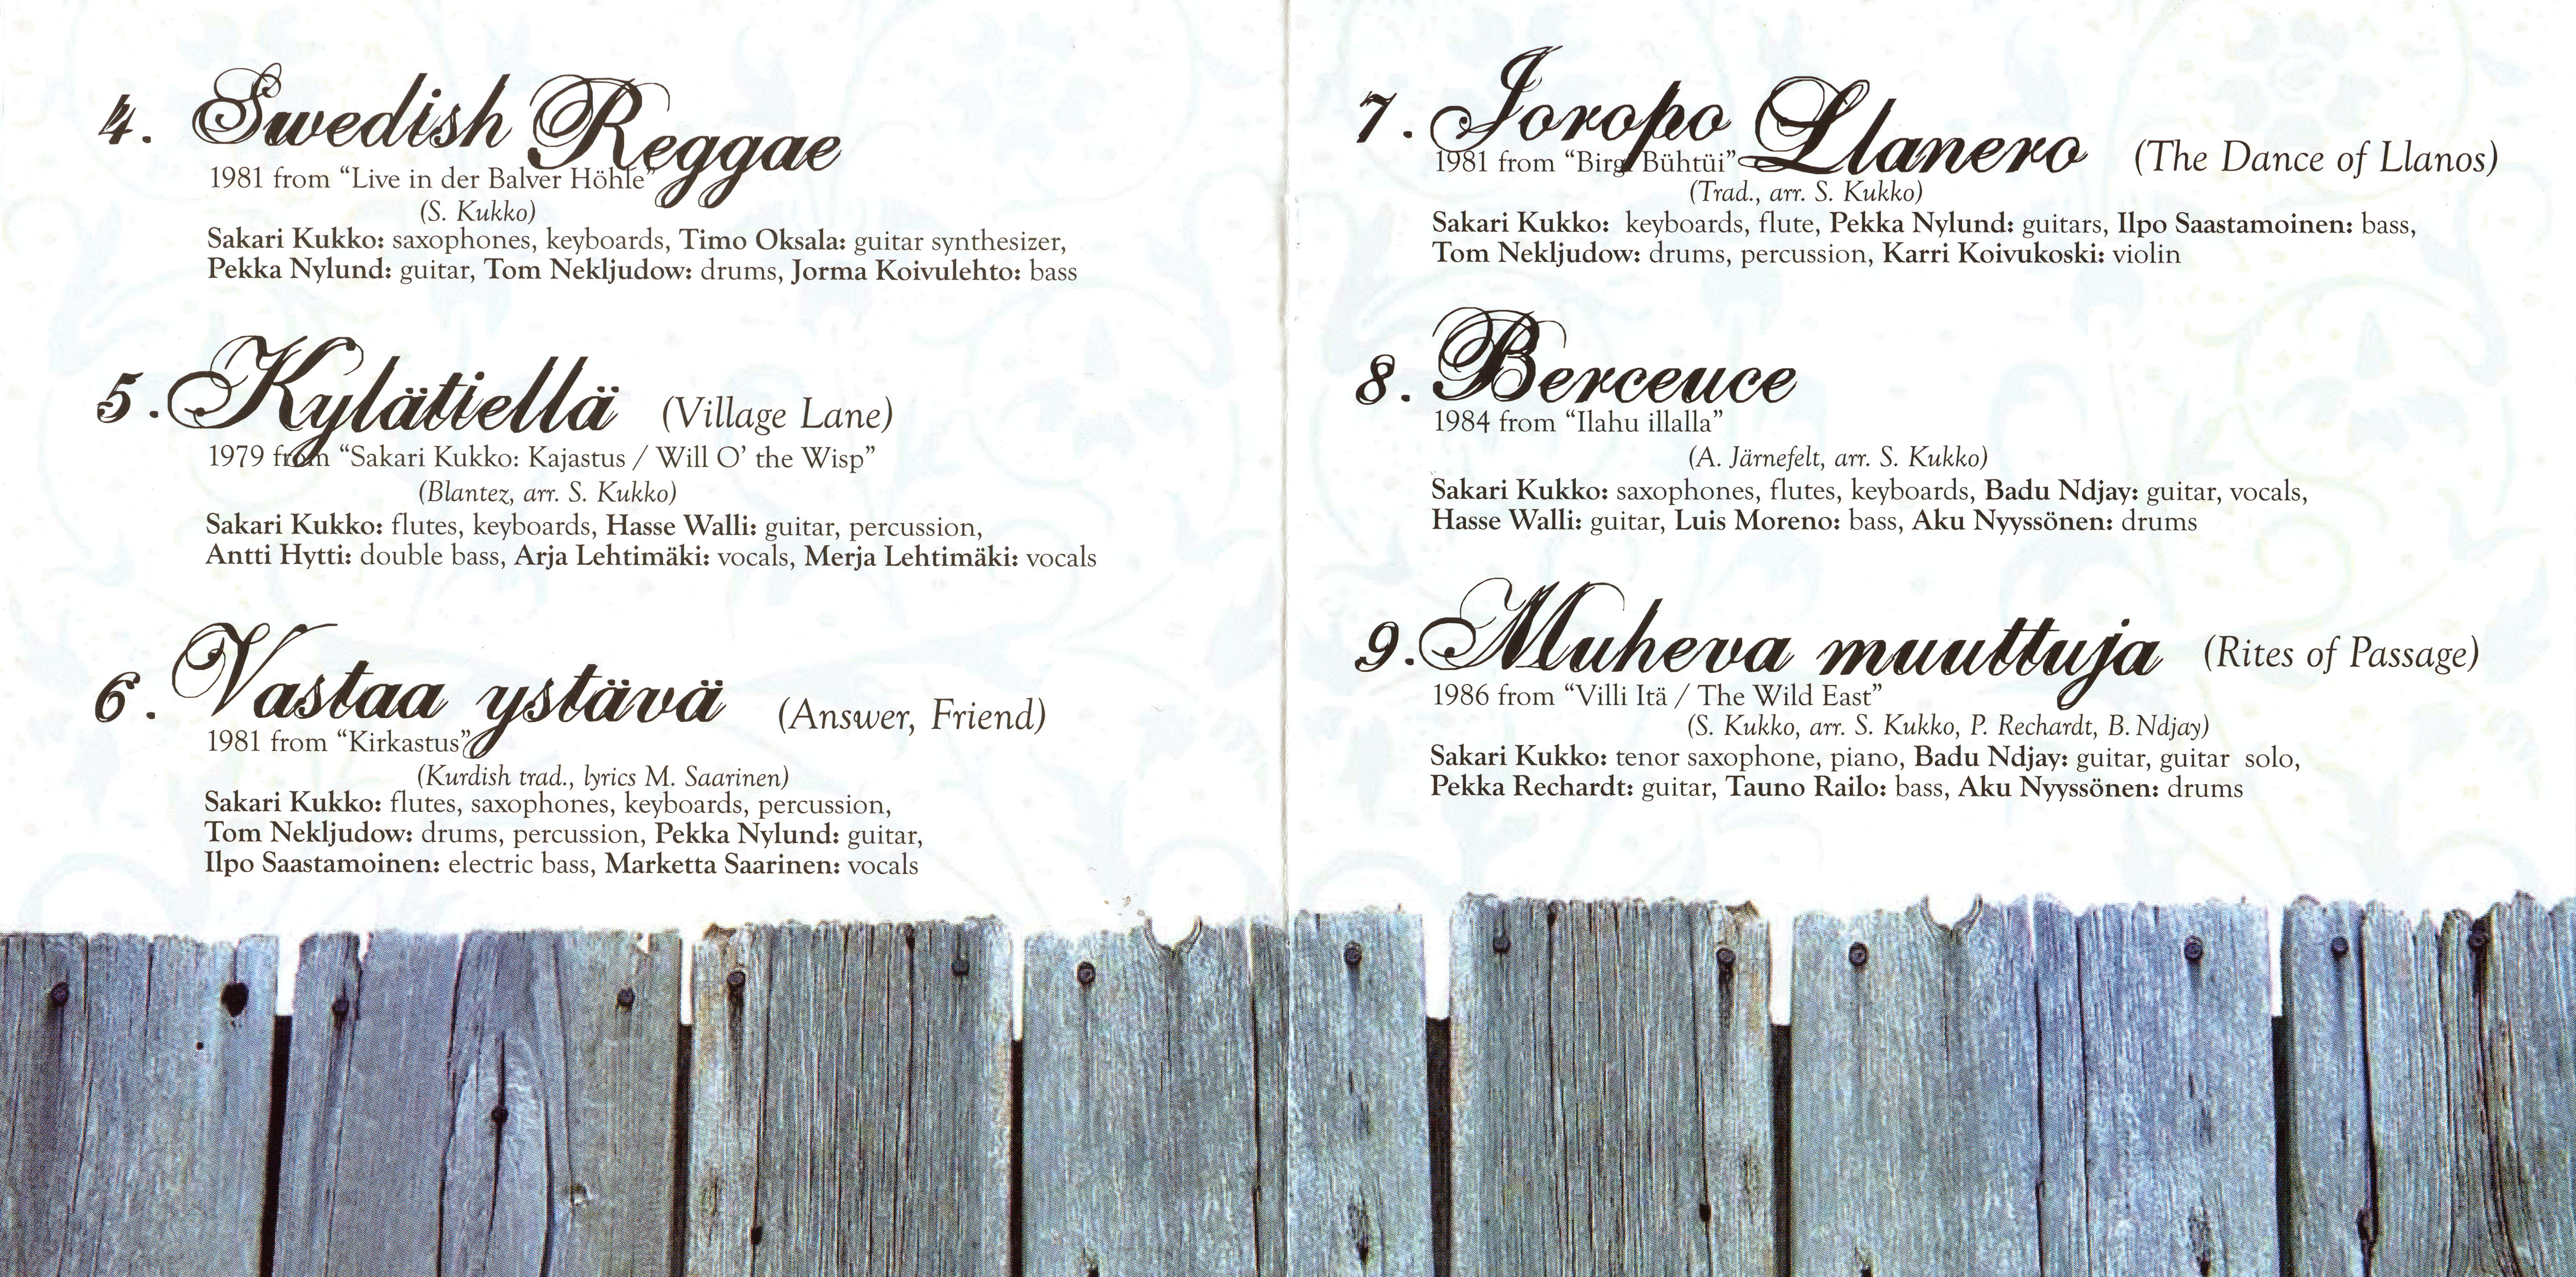 4. Swedish Reggae
1981 from “Live in der Balver Höhle”
(S. Kukko)
Sakari Kukko: saxophones, keyboards, Timo Oksala: guitar synthesizer,
Pekka Nylund: guitar, Tom Nekljudow: drums, Jorma Koivulehto: bass
5. Kylätiellä (Village Lane)
1979 from “Sakari Kukko: Kajastus / Will O’ the Wisp”
(Blantez, arr. S. Kukko)
Sakari Kukko: flutes, keyboards, Hasse Walli: guitar, percussion,
Antti Hytti: double bass, Arja Lehtimäki: vocals, Merja Lehtimäki: vocals
6. Vastaa ystävä (Answer, Friend)
1981 from “Kirkastus”
(Kurdish trad., lyrics M. Saarinen)
Sakari Kukko: flutes, saxophones, keyboards, percussion,
Tom Nekljudow: drums, percussion, Pekka Nylund: guitar,
Ilpo Saastamoinen: electric bass, Marketta Saarinen: vocals
7. Joropo Llanero (The Dance of Llanos)
1981 from “Birgi Bühtüi”
(Trad., arr. S. Kukko)
Sakari Kukko: keyboards, flute, Pekka Nylund: guitars, Ilpo Saastamoinen: bass,
Tom Nekljudow: drums, percussion, Karri Koivukoski: violin
8. Berceuce
1984 from “Ilahu illalla”
(A. Järnefelt, arr. S. Kukko)
Sakari Kukko: saxophones, flutes, keyboards, Badu Ndjay: guitar, vocals,
Hasse Walli: guitar, Luis Moreno: bass, Aku Nyyssönen: drums
9. Muheva muuttuja (Rites of Passage)
1986 from “Villi Itä / The Wild East”
(S. Kukko, arr. S. Kukko, P. Rechardt, B. Ndjay)
Sakari Kukko: tenor saxophone, piano, Badu Ndjay: guitar, guitar solo,
Pekka Rechardt: guitar, Tauno Railo: bass, Aku Nyyssönen: drums